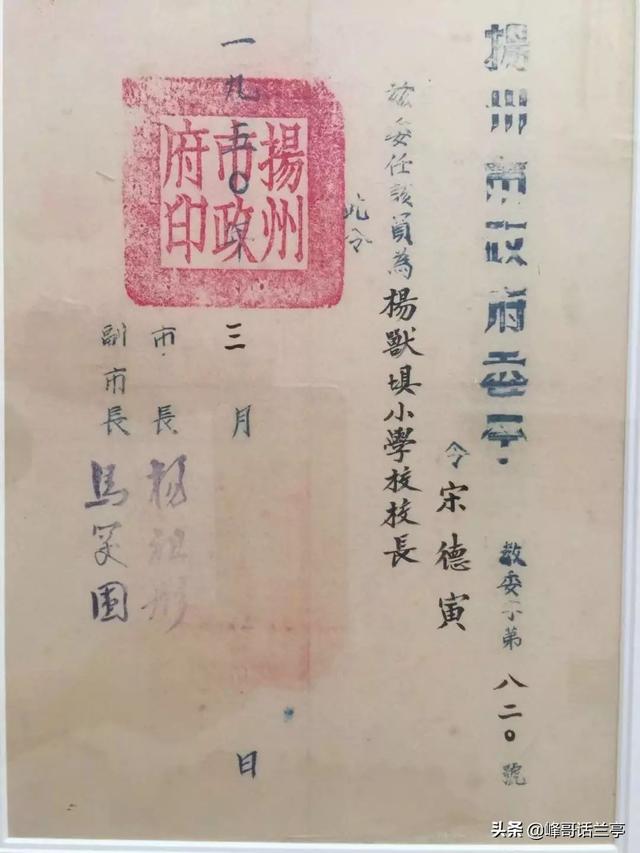 揚州市政府委令 教委字第八二〇號
令宋德寅
茲委任該員為揚獸埧小學校校長
此令
一九五〇年三月 日
市長 楊祖彤
副市長 馬笑
揚州市政府印
头条 @峰哥话兰亭